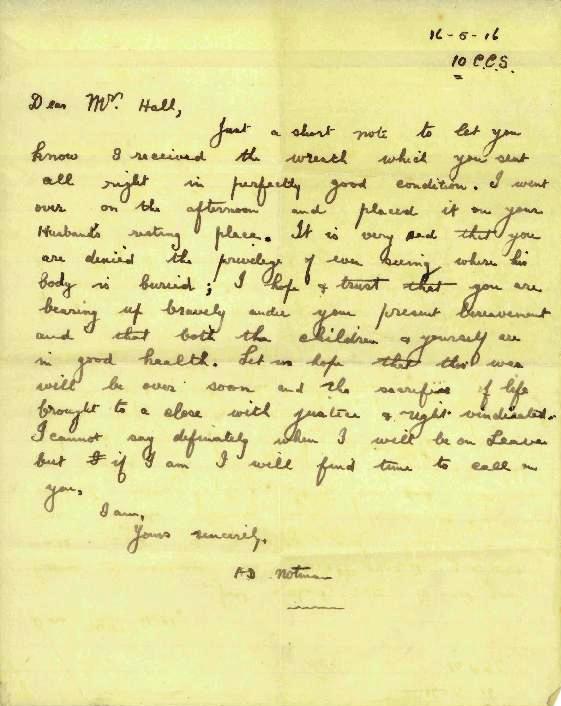 16-6-16
10 C.C.S.
Dear Mrs. Hall,
Just a short note to let you
know I received the wreath which you sent
all right in perfectly good condition. I went
over on the afternoon and placed it on your
Husbands resting place. It is very sad that you
are denied the privelege of even seeing where his
body is buried; I hope & trust that you are
bearing up bravely under your present bereavement
and that both the children & yourself are
in good health. Let us hope that this war
will be over soon and the sacrifice of life
brought to a close with justice & right vindicated.
I cannot say definately when I will be on Leave
but if I am I will find time to call on
you.
I am,
Yours sincerely,
AD Notman